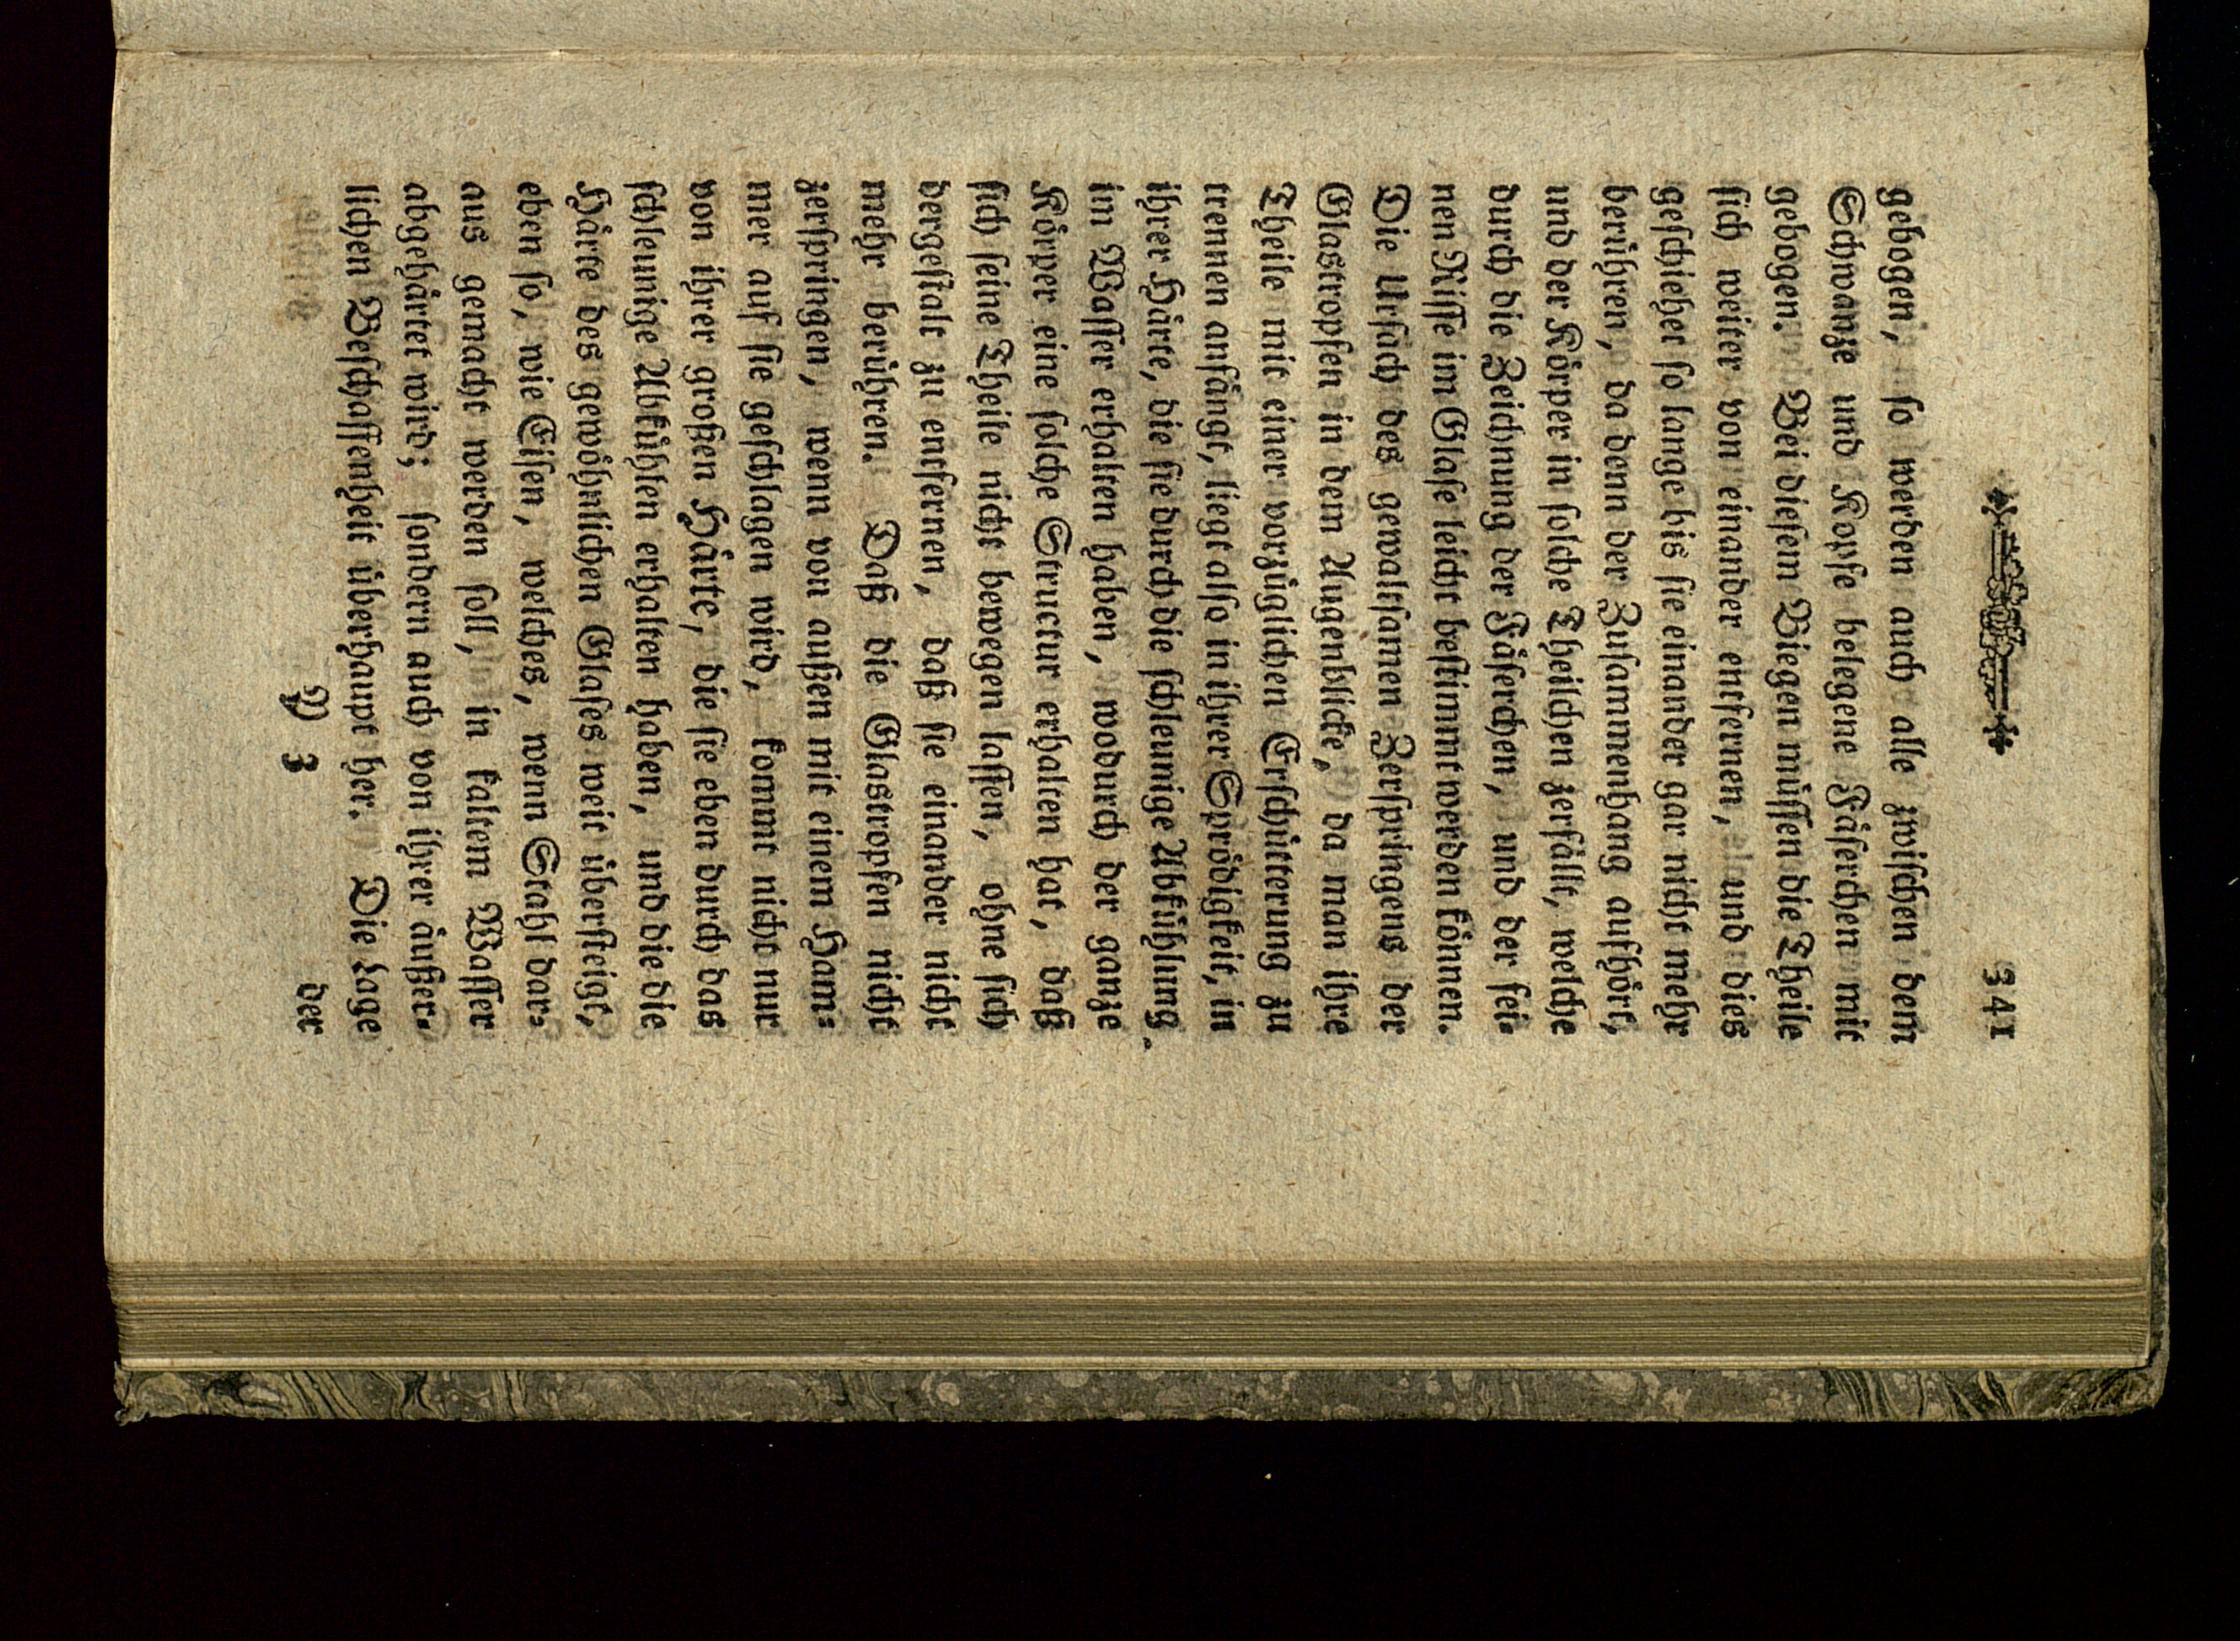 341
gebogen, so werden auch alle zwischen dem
Schwanze und Kopfe belegene Fäserchen mit
gebogen. Bei diesem Biegen müssen die Theile
sich weiter von einander entfernen, und dies
geschiehet so lange bis sie einander gar nicht mehr
berühren, da denn der Zusammenhang aufhört,
und der Körper in solche Theilchen zerfällt, welche
durch die Zeichnung der Fäserchen, und der fei-
nen Risse im Glase leicht bestimmt werden können.
Die Ursach des gewaltsamen Zerspringens der
Glastropfen in dem Augenblicke, da man ihre
Theile mit einer vorzüglichen Erschütterung zu
trennen anfängt, liegt also in ihrer Sprödigkeit, in
ihrer Härte, die sie durch die schleunige Abkühlung
im Wasser erhalten haben, wodurch der ganze
Körper eine solche Structur erhalten hat, daß
sich seine Theile nicht bewegen lassen, ohne sich
dergestalt zu entfernen, daß sie einander nicht
mehr berühren. Daß die Glastropfen nicht
zerspringen, wenn von außen mit einem Ham-
mer auf sie geschlagen wird, kommt nicht nur
von ihrer großen Härte, die sie eben durch das
schleunige Abkühlen erhalten haben, und die die
Härte des gewöhnlichen Glases weit übersteigt,
eben so, wie Eisen, welches, wenn Stahl dar-
aus gemacht werden soll, in kaltem Wasser
abgehärtet wird; sondern auch von ihrer äußer-
lichen Beschaffenheit überhaupt her. Die Lage
Y 3 der